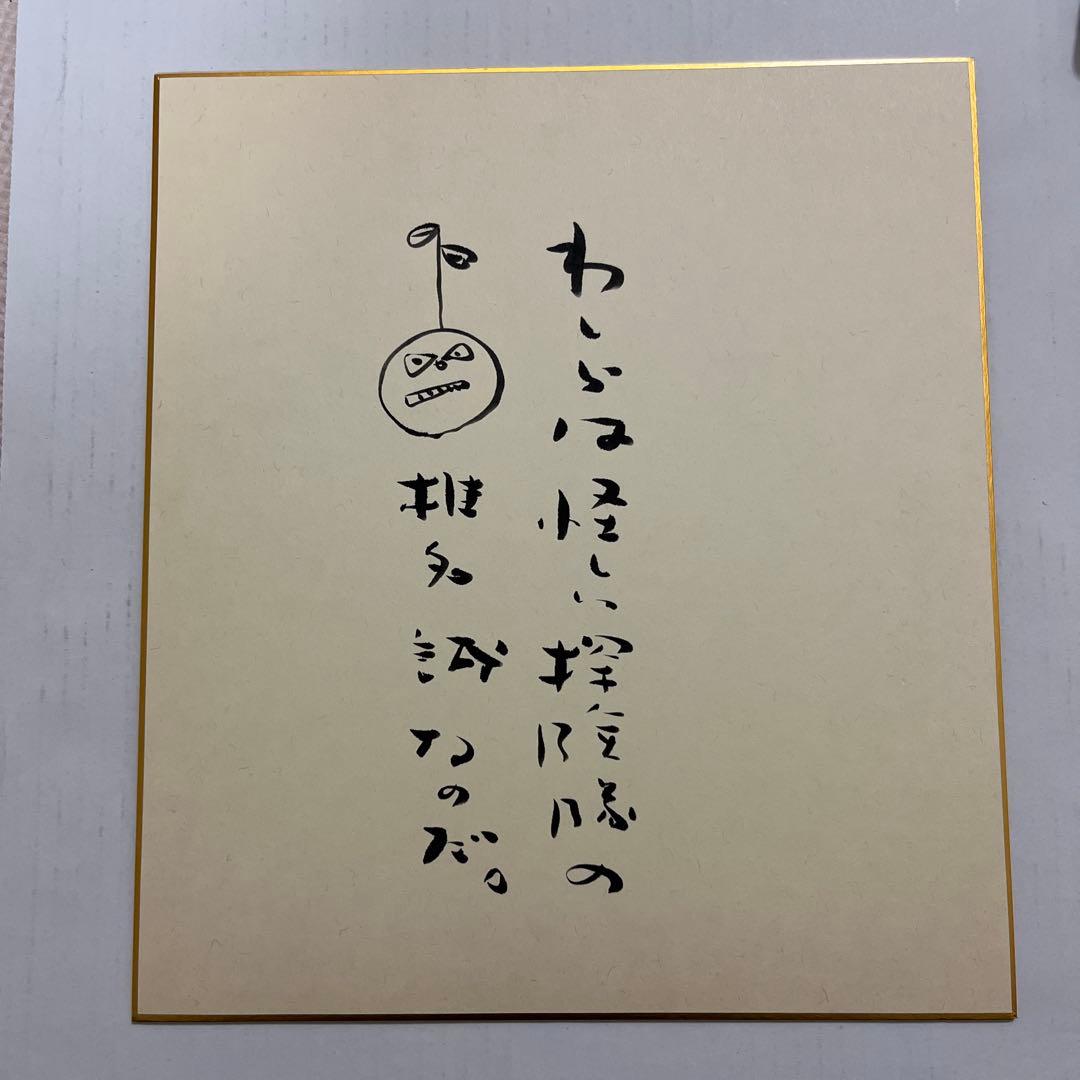 わしらは怪しい探険隊の
椎名誠なのだ。